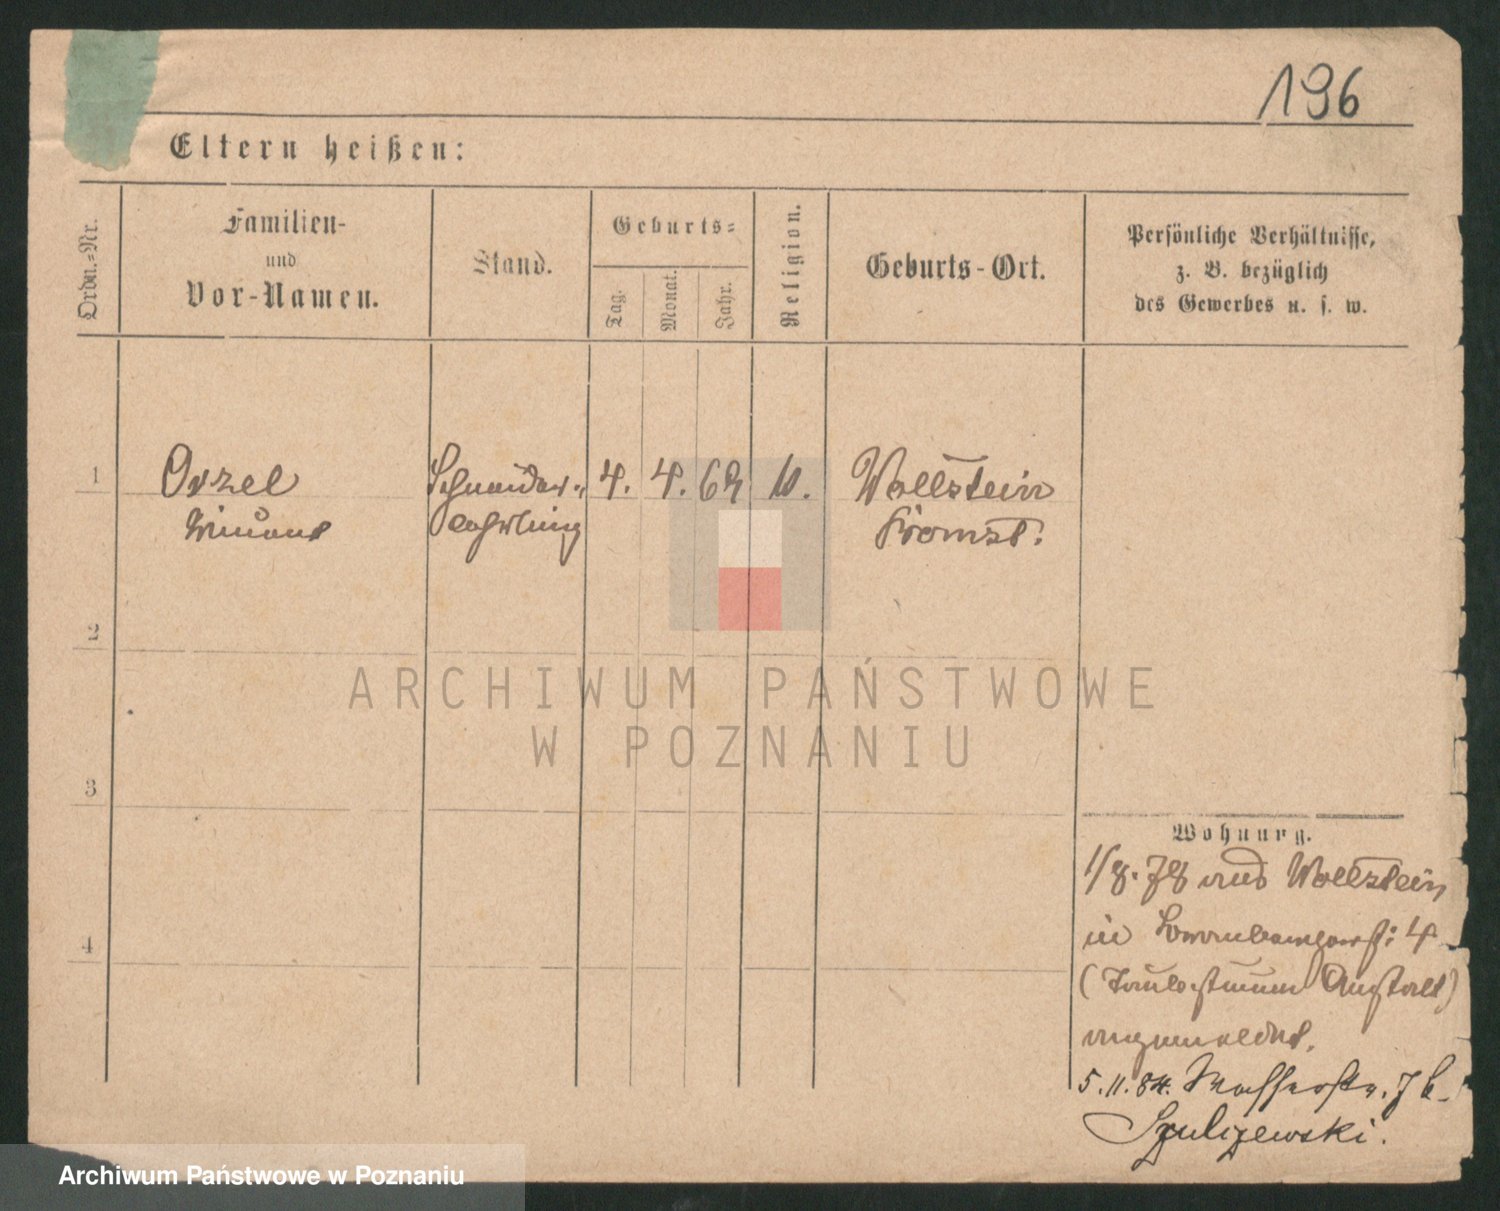 196
Eltern heißen:
Ordn.-Nr.
Familien-
und
Vor-Namen.
Stand.
Geburts-
Tag.
Monat.
Jahr.
Religion.
Geburts-Ort.
Persönliche Verhältnisse,
z. B. bezüglich
des Gewerbes u. s. w.
1
Orzel
Schneider-
4. 4. 62
Wollstein
lehrling
Bomst.
2
ARCHIWUM PAŃSTWOWE
W POZNANIU
3
Wohnung.
1/8. 78 aus Wollstein
4
in 4
(Taubstummen Anstalt)
angemeldet.
5.11.84. Wasserstr. 7
Szulczewski.
Archiwum Państwowe w Poznaniu